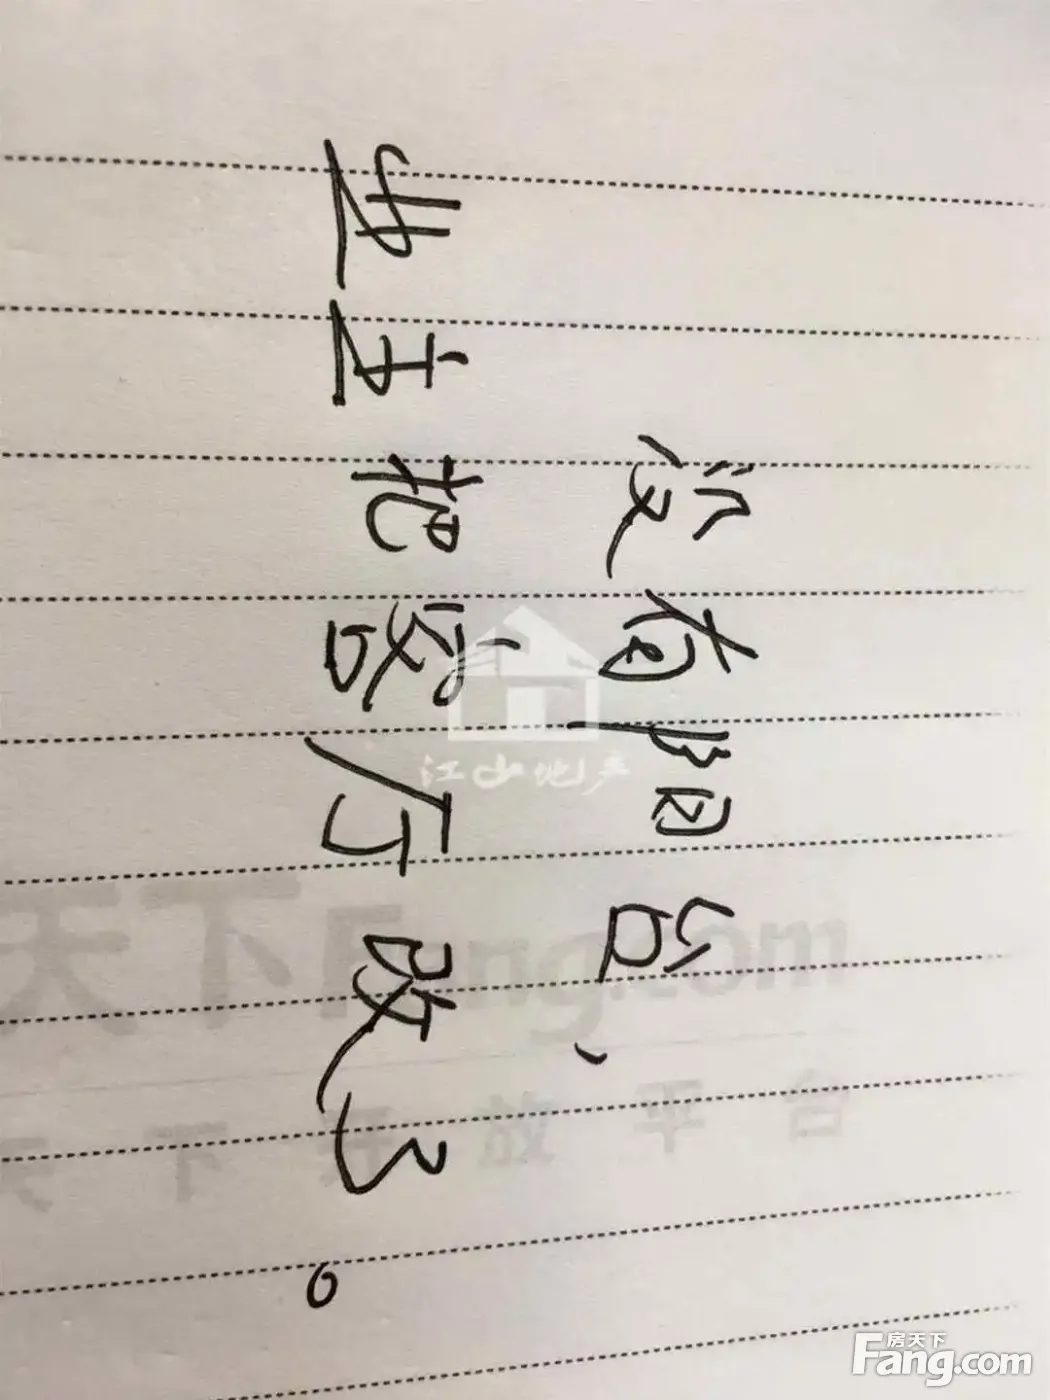 没有阳台、
业主把客厅改了。
江山地产
天下Fang.com
天下开放平台
房天下
Fang.com